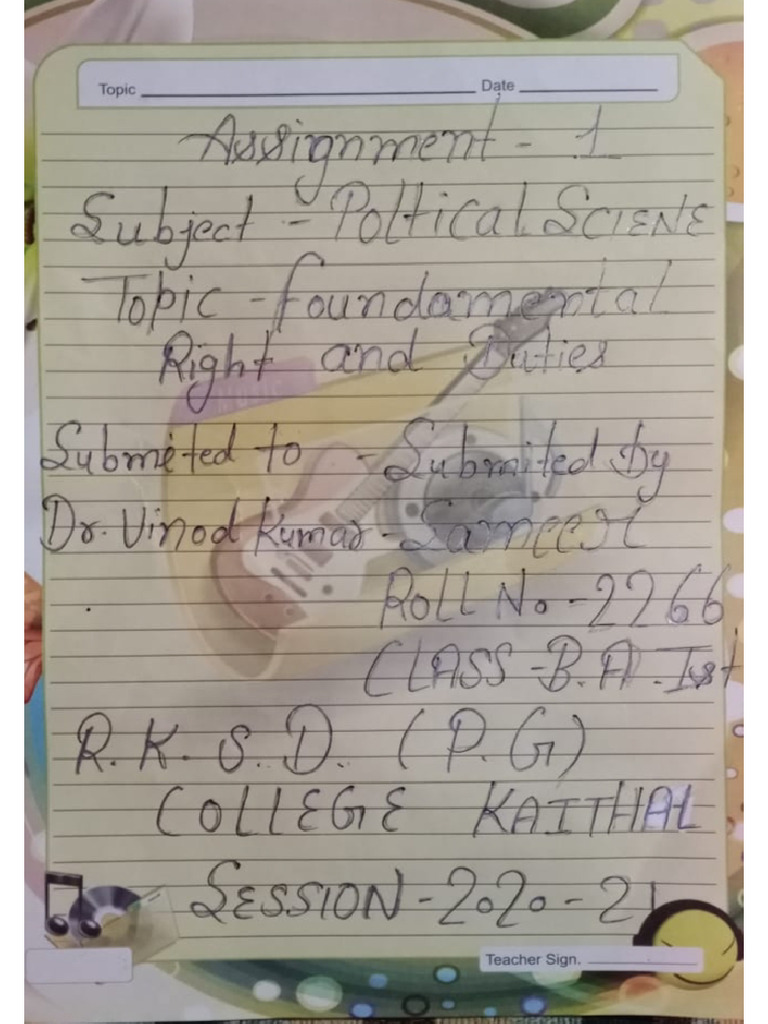 Topic Date
Assignment - 1
Subject - Poltical SCIENE
Topic - foundamental
Right and Duties
Submeted to - Submited by
Dr. Vinod Kumar - Sameer
ROLL No - 2266
CLASS - B.A. Ist
R.K.S.D. (P.G)
COLLEGE KAITHAL
SESSION - 2020 - 21
Teacher Sign.